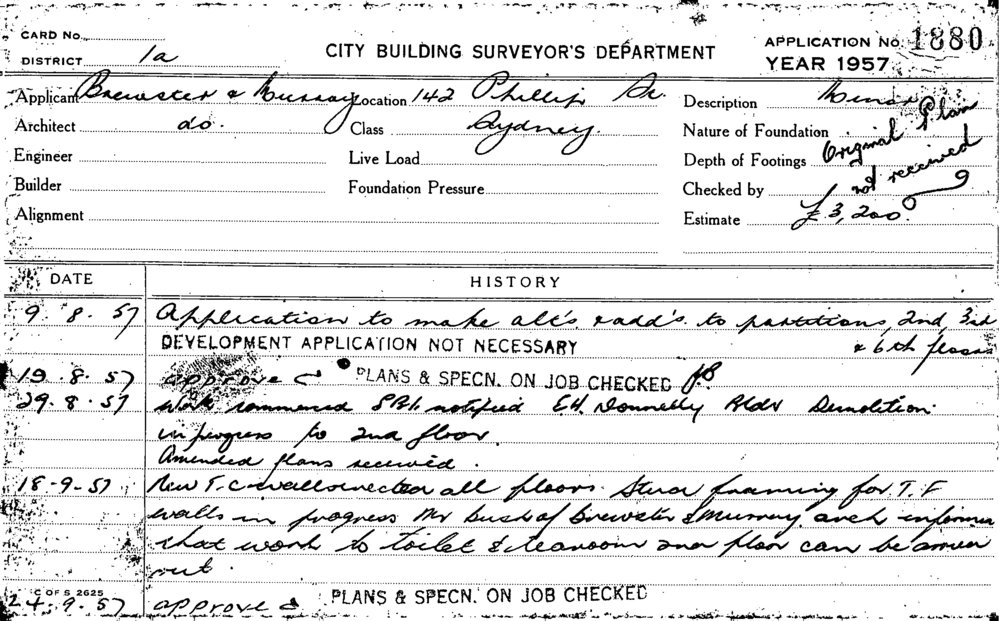 CARD No.
DISTRICT 1a
CITY BUILDING SURVEYOR'S DEPARTMENT
APPLICATION No. 1880
YEAR 1957
Applicant Brewster & Murray Location 142 Phillip St.
Architect do. Class Sydney.
Engineer Live Load
Builder Foundation Pressure
Alignment
Description Minor
Nature of Foundation
Depth of Footings
Checked by
Estimate £3,200
Original Plan
not received
DATE HISTORY
9. 8. 57 Application to make alt's. & add's. to partitions, 2nd, 3rd
& 6th floors
DEVELOPMENT APPLICATION NOT NECESSARY
19. 8. 57 approved PLANS & SPECN. ON JOB CHECKED
29. 8. 57 Work commenced notified E.H. Donnelly Bldr Demolition
in progress to 2nd floor.
Amended plans received.
18-9-57 New T.C walls erected all floors. Stud framing for T.F
walls in progress Mr Bush of Brewster & Murray, arch informed
that work to toilet & tearoom 2nd floor can be carried
out.
C OF S 2625
24. 9. 57 approved PLANS & SPECN. ON JOB CHECKED